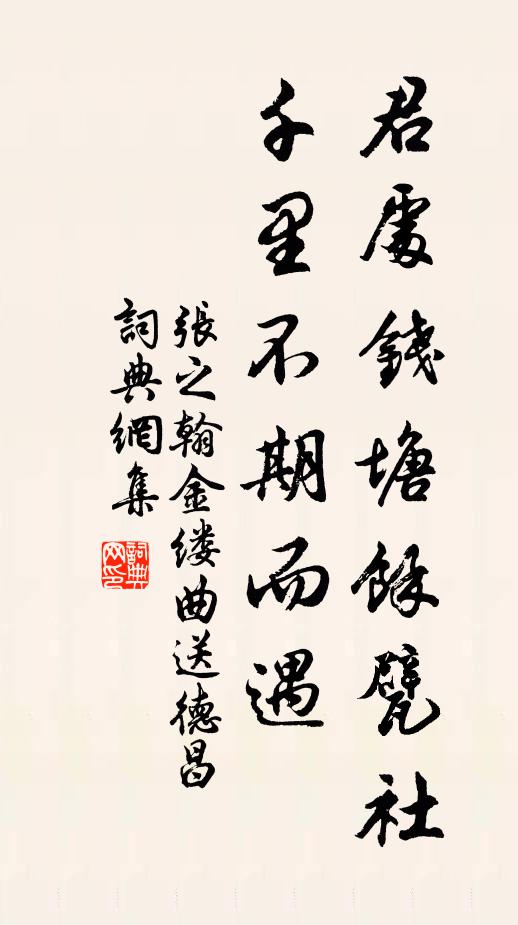 君處錢塘餘甓社
千里不期而遇
張之翰金缕曲送德昌
詞典網集
詞典網印